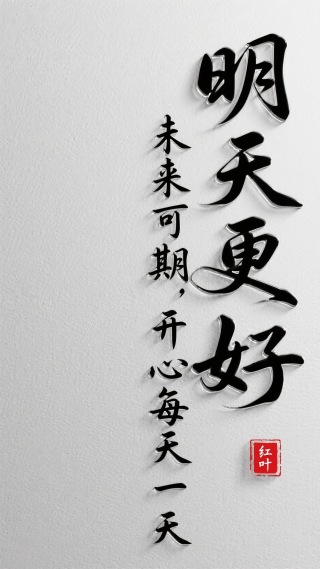 明天更好
未来可期，开心每天一天
红叶